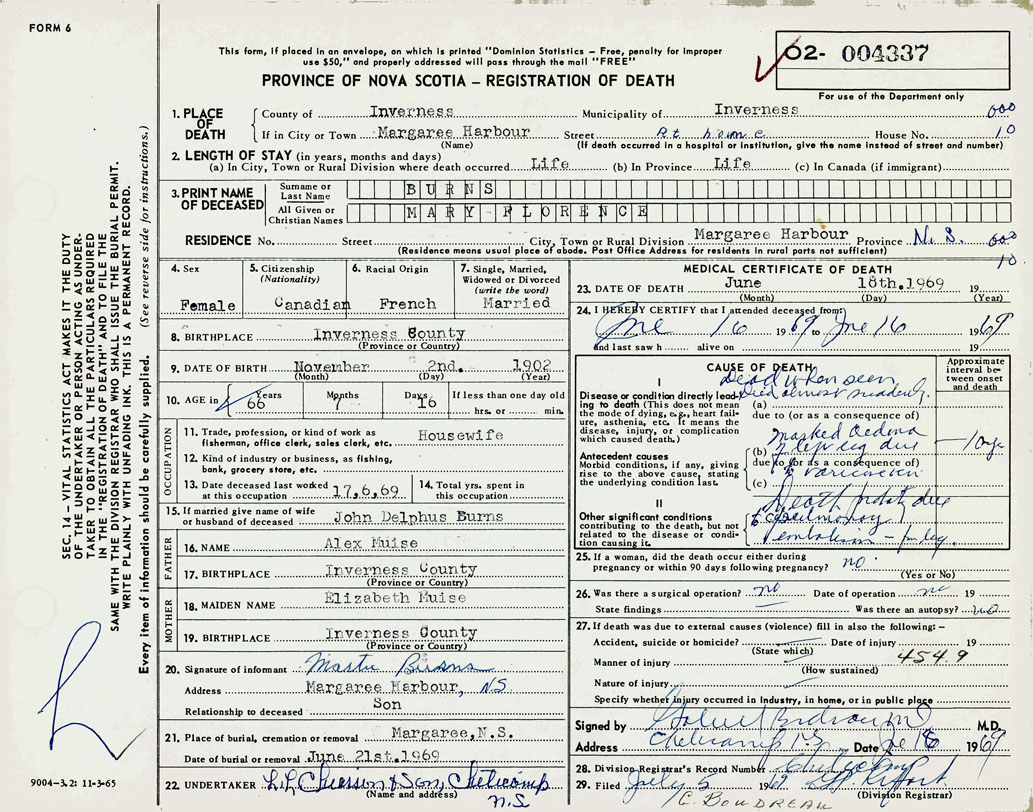 FORM 6
This form, if placed in an envelope, on which is printed "Dominion Statistics – Free, penalty for improper
use $50," and properly addressed will pass through the mail "FREE"
PROVINCE OF NOVA SCOTIA – REGISTRATION OF DEATH
02- 004337
For use of the Department only
1. PLACE OF DEATH
County of Inverness Municipality of Inverness 000
If in City or Town Margaree Harbour Street At home House No. 10
(Name) (If death occurred in a hospital or institution, give the name instead of street and number)
2. LENGTH OF STAY (in years, months and days)
(a) In City, Town or Rural Division where death occurred Life (b) In Province Life (c) In Canada (if immigrant)
3. PRINT NAME OF DECEASED
Surname or Last Name BURNS
All Given or Christian Names MARY FLORENCE
RESIDENCE No. Street City, Town or Rural Division Margaree Harbour Province N.S. 000
(Residence means usual place of abode. Post Office Address for residents in rural parts not sufficient) 10
4. Sex Female
5. Citizenship (Nationality) Canadian
6. Racial Origin French
7. Single, Married, Widowed or Divorced (write the word) Married
8. BIRTHPLACE Inverness County
(Province or Country)
9. DATE OF BIRTH November 2nd. 1902
(Month) (Day) (Year)
10. AGE in Years 66 Months 7 Days 16 If less than one day old
hrs. or min.
OCCUPATION
11. Trade, profession, or kind of work as fisherman, office clerk, sales clerk, etc. Housewife
12. Kind of industry or business, as fishing, bank, grocery store, etc.
13. Date deceased last worked at this occupation 17,6,69 14. Total yrs. spent in this occupation
15. If married give name of wife or husband of deceased John Delphus Burns
FATHER
16. NAME Alex Muise
17. BIRTHPLACE Inverness County
(Province or Country)
MOTHER
18. MAIDEN NAME Elizabeth Muise
19. BIRTHPLACE Inverness County
(Province or Country)
20. Signature of informant Burns
Address Margaree Harbour, NS
Relationship to deceased Son
21. Place of burial, cremation or removal Margaree,N.S.
Date of burial or removal June 21st.1969
22. UNDERTAKER & Son, Cheticamp
(Name and address) N.S
MEDICAL CERTIFICATE OF DEATH
23. DATE OF DEATH June 18th.1969 19
(Month) (Day) (Year)
24. I HEREBY CERTIFY that I attended deceased from:
June 16 1969 to June 16 1969
and last saw h alive on 19
CAUSE OF DEATH
Approximate interval between onset and death
I Dead when seen
Disease or condition directly leading to death (This does not mean the mode of dying, e.g., heart failure, asthenia, etc. It means the disease, injury, or complication which caused death.)
(a) Died almost suddenly.
due to (or as a consequence of)
Antecedent causes
Morbid conditions, if any, giving rise to the above cause, stating the underlying condition last.
(b) marked Oedema
leg due
due to (or as a consequence of)
(c)
II
Other significant conditions contributing to the death, but not related to the disease or condition causing it.
Death due
to pulmonary
embolism
25. If a woman, did the death occur either during pregnancy or within 90 days following pregnancy? no
(Yes or No)
26. Was there a surgical operation? no Date of operation 19
State findings Was there an autopsy? no
27. If death was due to external causes (violence) fill in also the following:–
Accident, suicide or homicide? Date of injury 19
(State which)
Manner of injury 454.9
(How sustained)
Nature of injury
Specify whether injury occurred in industry, in home, or in public place
Signed by M.D.
Address Cheticamp Date 18 1969
28. Division Registrar's Record Number
29. Filed July 5 19
(Division Registrar)
C. BOUDREAU
9004–3.2: 11-3-65
SEC. 14 – VITAL STATISTICS ACT MAKES IT THE DUTY
OF THE UNDERTAKER OR PERSON ACTING AS UNDER-
TAKER TO OBTAIN ALL THE PARTICULARS REQUIRED
IN THE "REGISTRATION OF DEATH" AND TO FILE THE
SAME WITH THE DIVISION REGISTRAR WHO SHALL ISSUE THE BURIAL PERMIT.
WRITE PLAINLY WITH UNFADING INK. THIS IS A PERMANENT RECORD.
Every item of information should be carefully supplied. (See reverse side for instructions.)